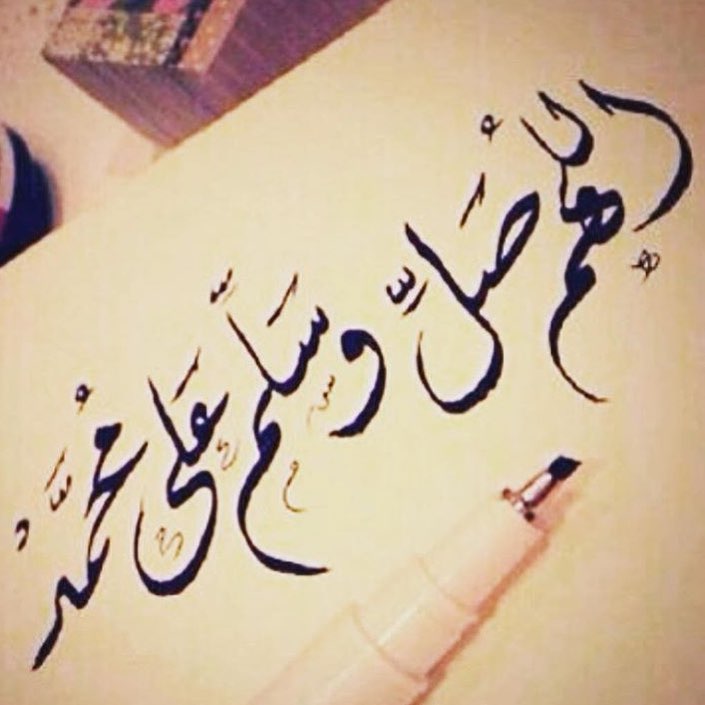 اللهم صَلِّ وسَلِّم عَلى مُحَمَّد